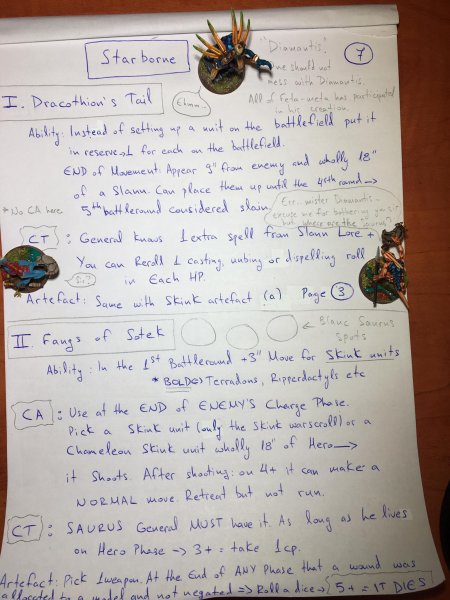 Starborne
7
"Diamantis".
one should not
mess with Diamantis.
All of Feta-meta has participated
in his creation.
Ehmm..
I. Dracothion's Tail
Ability: Instead of setting up a unit on the battlefield put it
in reserve → 1 for each on the battlefield.
END of Movement: Appear 9" from enemy and wholly 18"
of a Slann. Can place them up until the 4rth round →
5th battleround considered slain.
* No CA here
Err.. mister Diamantis
excuse me for bother my sir
but where are the "saurus"
CT : General knows 1 extra spell from Slann Lore +
You can Reroll 1 casting, unbing or dispelling roll
in Each HP.
Sir?
Artefact: Same with Skink artefact (a) Page 3
II. Fangs of Sotek
← Blanc Saurus
Spots
Ability: In the 1st Battleround +3" Move for Skink units
* BOLD Terradons, Ripperdactyls etc
CA : Use at the END of ENEMY'S Charge Phase.
Pick a Skink unit (only the skink warscroll) or a
Chameleon Skink unit wholly 18" of Hero →
it Shoots. After shooting: on 4+ it can make a
NORMAL move. Retreat but not run.
CT : SAURUS General MUST have it. As long as he lives
on Hero Phase → 3+ = take 1cp.
Artefact: Pick 1 weapon. At the End of ANY Phase that a wound was
allocated to a model and not negated ⇒ Roll a dice → 5+ = IT DIES